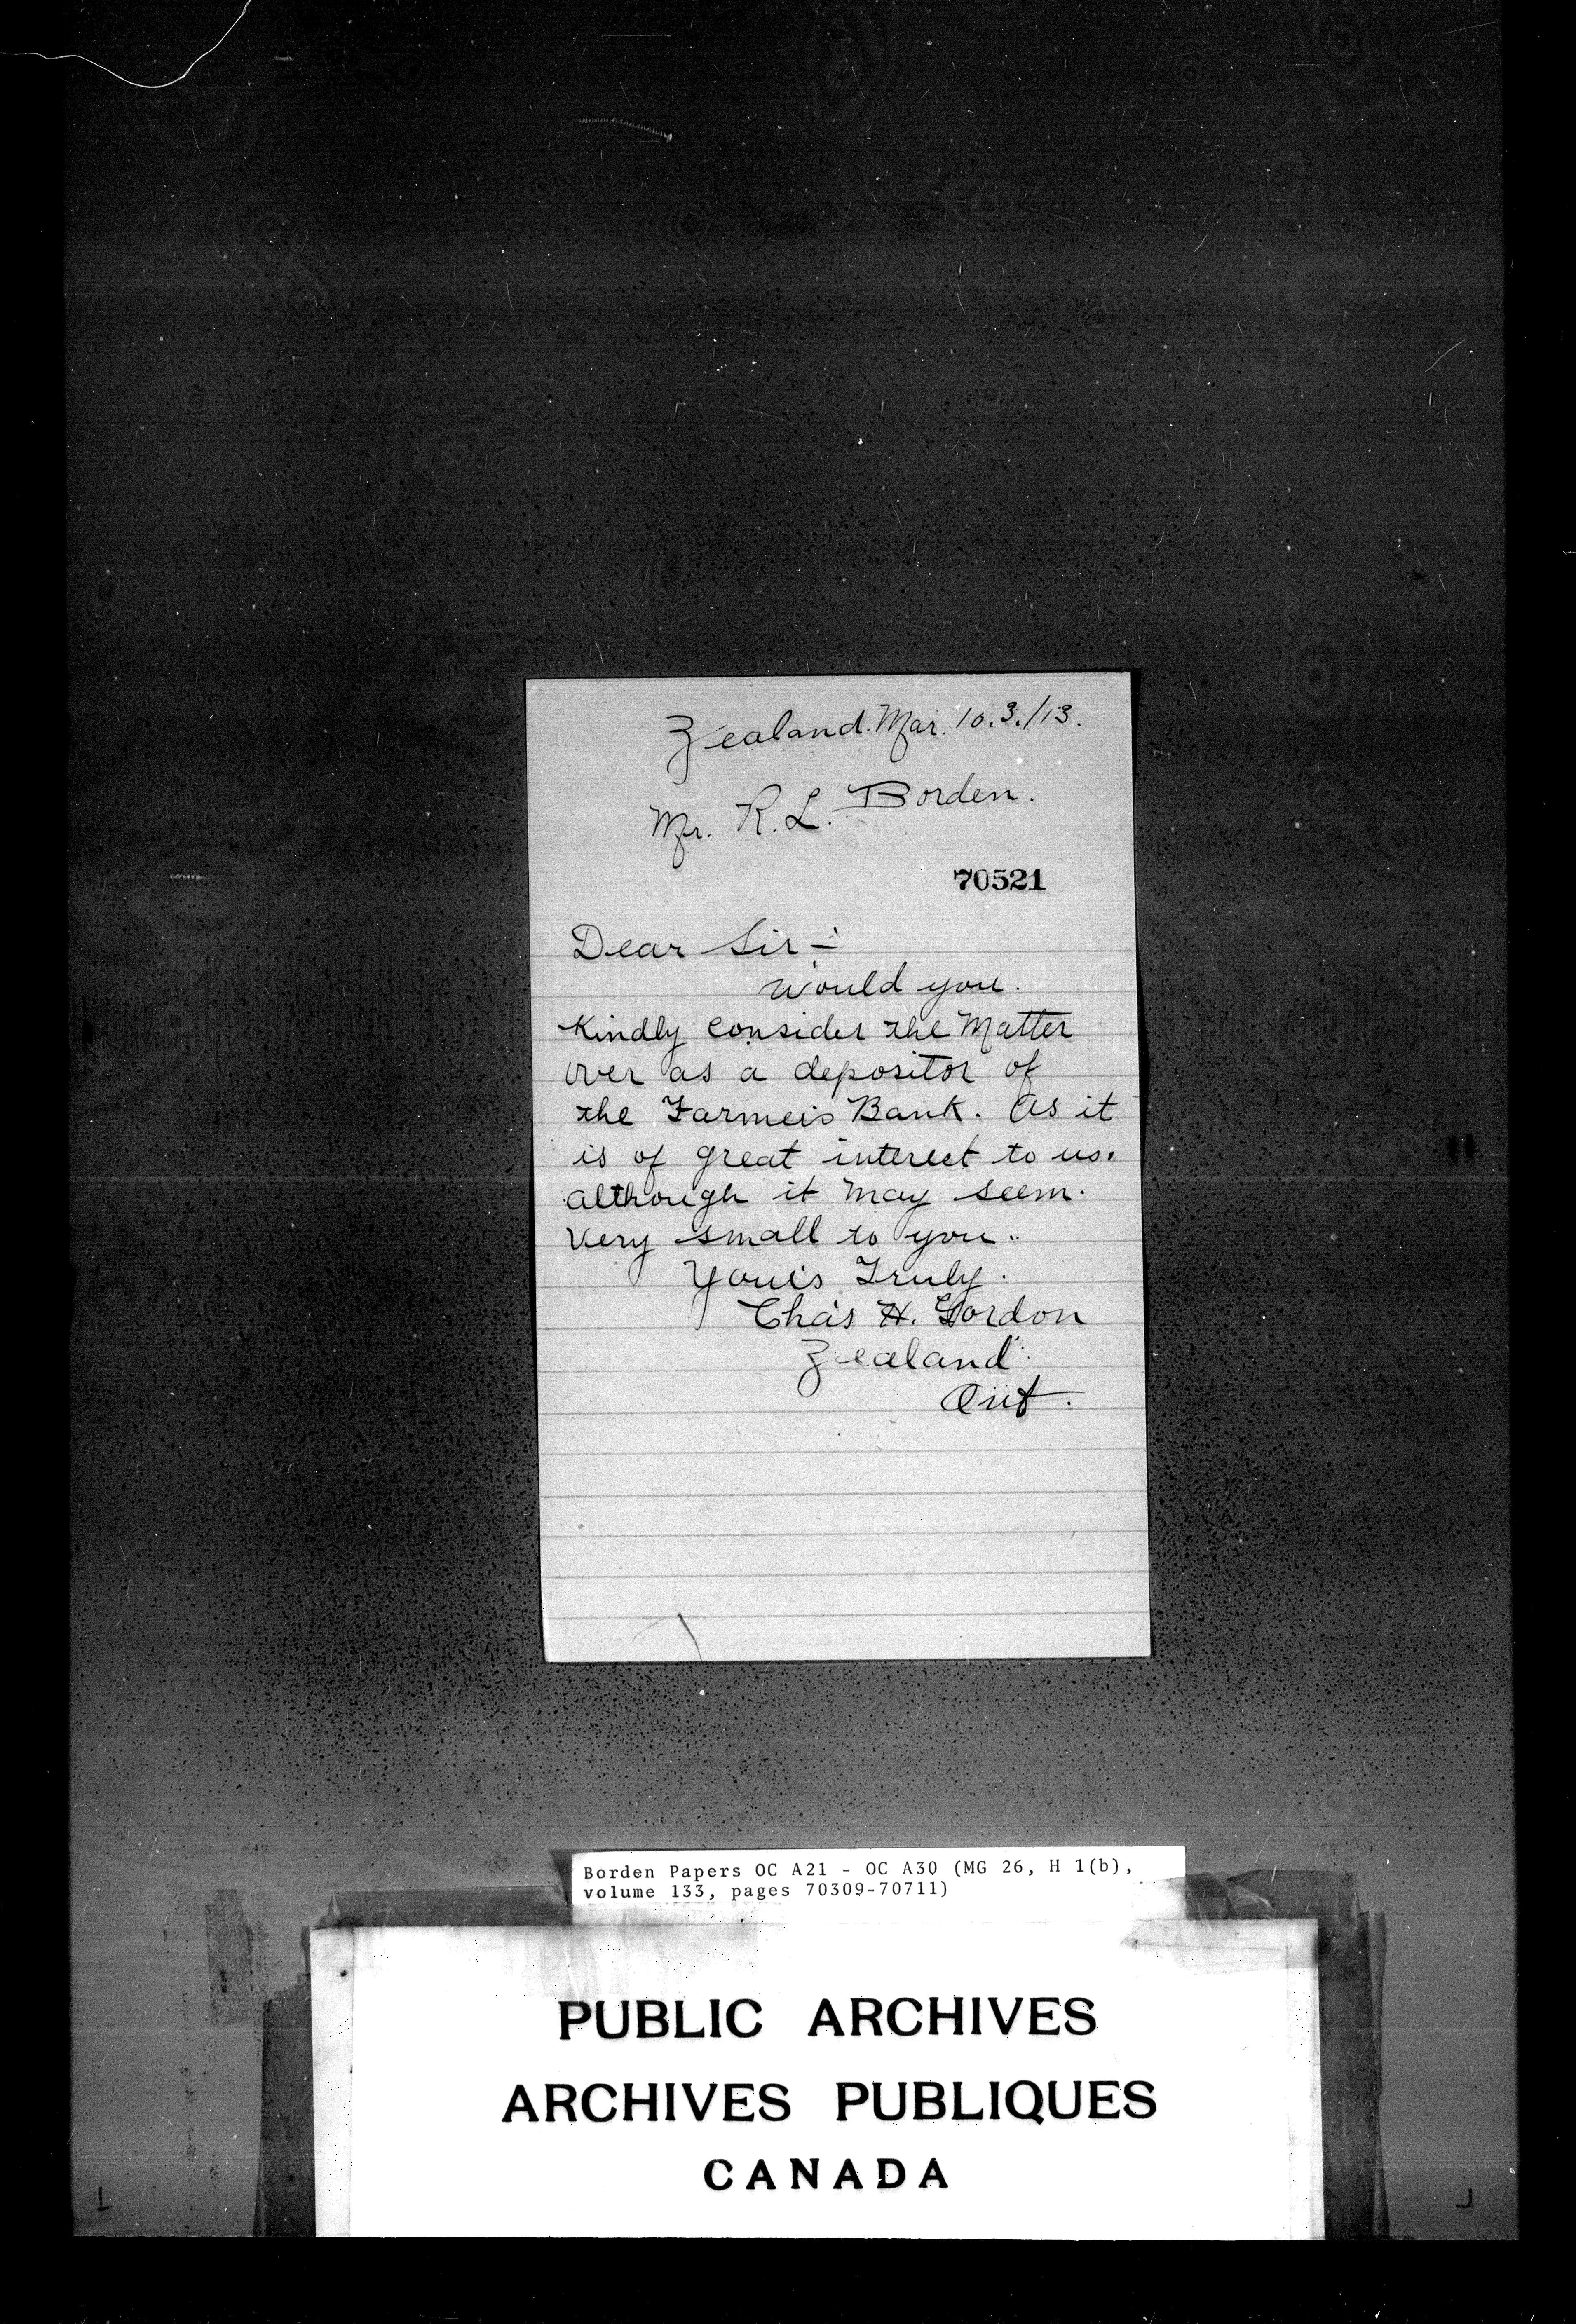 Zealand. Mar. 10.3./13.
Mr. R. L. Borden.
70521
Dear Sir :-
would you.
Kindly consider the Matter
over as a depositor of
the Farmers Bank. As it
is of great interest to us.
although it may seem.
very small to you.
Yours Truly.
Chas H. Gordon
Zealand
Ont.
Borden Papers OC A21 - OC A30 (MG 26, H 1(b),
volume 133, pages 70309-70711)
PUBLIC ARCHIVES
ARCHIVES PUBLIQUES
CANADA